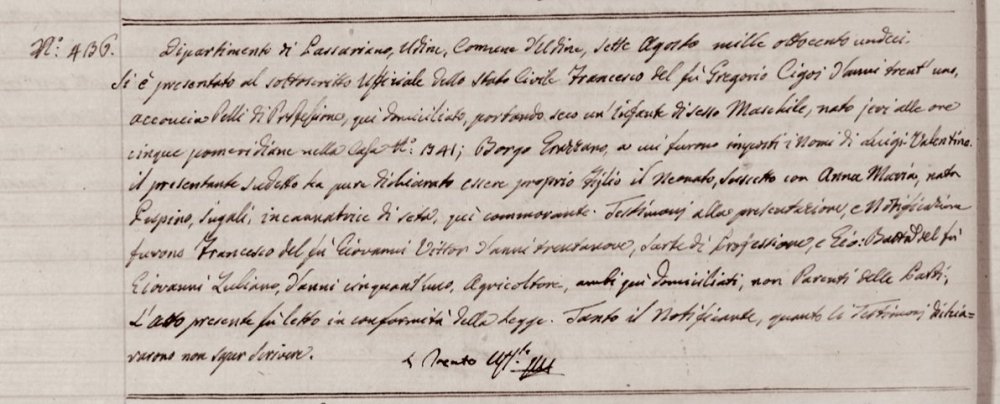 N.º 436. Dipartimento di Passariano, Udine, Comune d'Udine, sette Agosto mille ottocento undeci.
Si è presentato al sottoscritto Uffiziale dello Stato Civile Francesco del fù Gregorio Cigoi d'anni trent'uno,
acconcia Pelli di Professione, quì domiciliato, portando seco un'Infante di sesso Maschile, nato jeri alle ore
cinque pomeridiane nella Casa N.º 1341; Borgo Grazzano, a cui furono imposti i Nomi di Luigi Valentino.
il presentante sudetto ha pure dichiarato essere proprio figlio il Neonato, suscetto con Anna Maria, nata
Jugali, incannatrice di seta, quì commorante. Testimonj alla presentazione, e Notificazione
furono Francesco del fù Giovanni Vittor d'anni trentanove, Sarte di Professione, e Gio: Batta del fù
Giovanni Zuliano, d'anni cinquant'uno, Agricoltore, ambi quì domiciliati, non Parenti delle Parti;
L'atto presente fù letto in conformità della Legge. Tanto il Notificante, quanto li Testimonj dichia=
rarono non saper scrivere.
Trento Uff.le